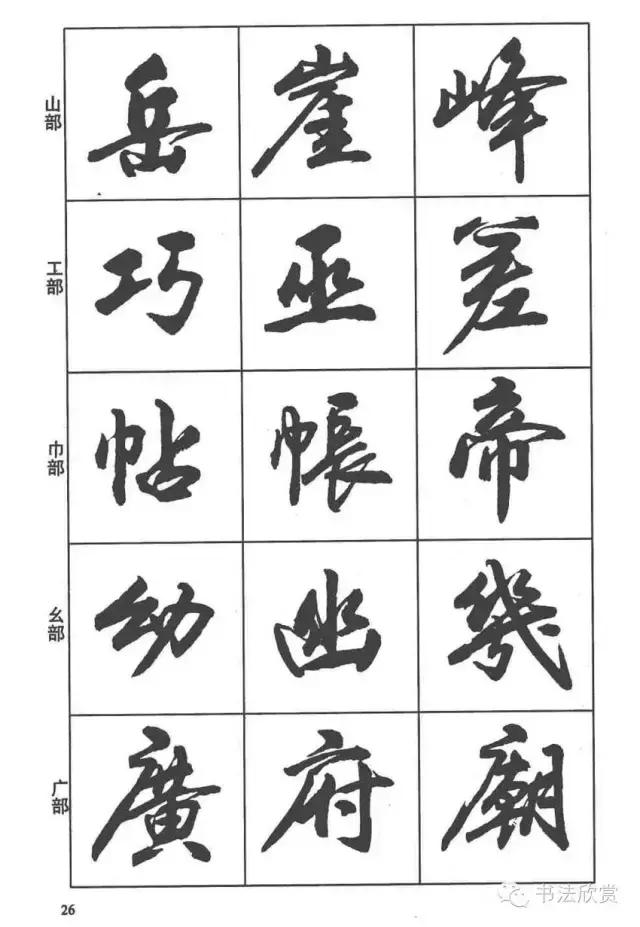 山部 岳 崖 峰
工部 巧 巫 差
巾部 帖 帳 帝
幺部 幼 幽 幾
广部 廣 府 廟
26
书法欣赏